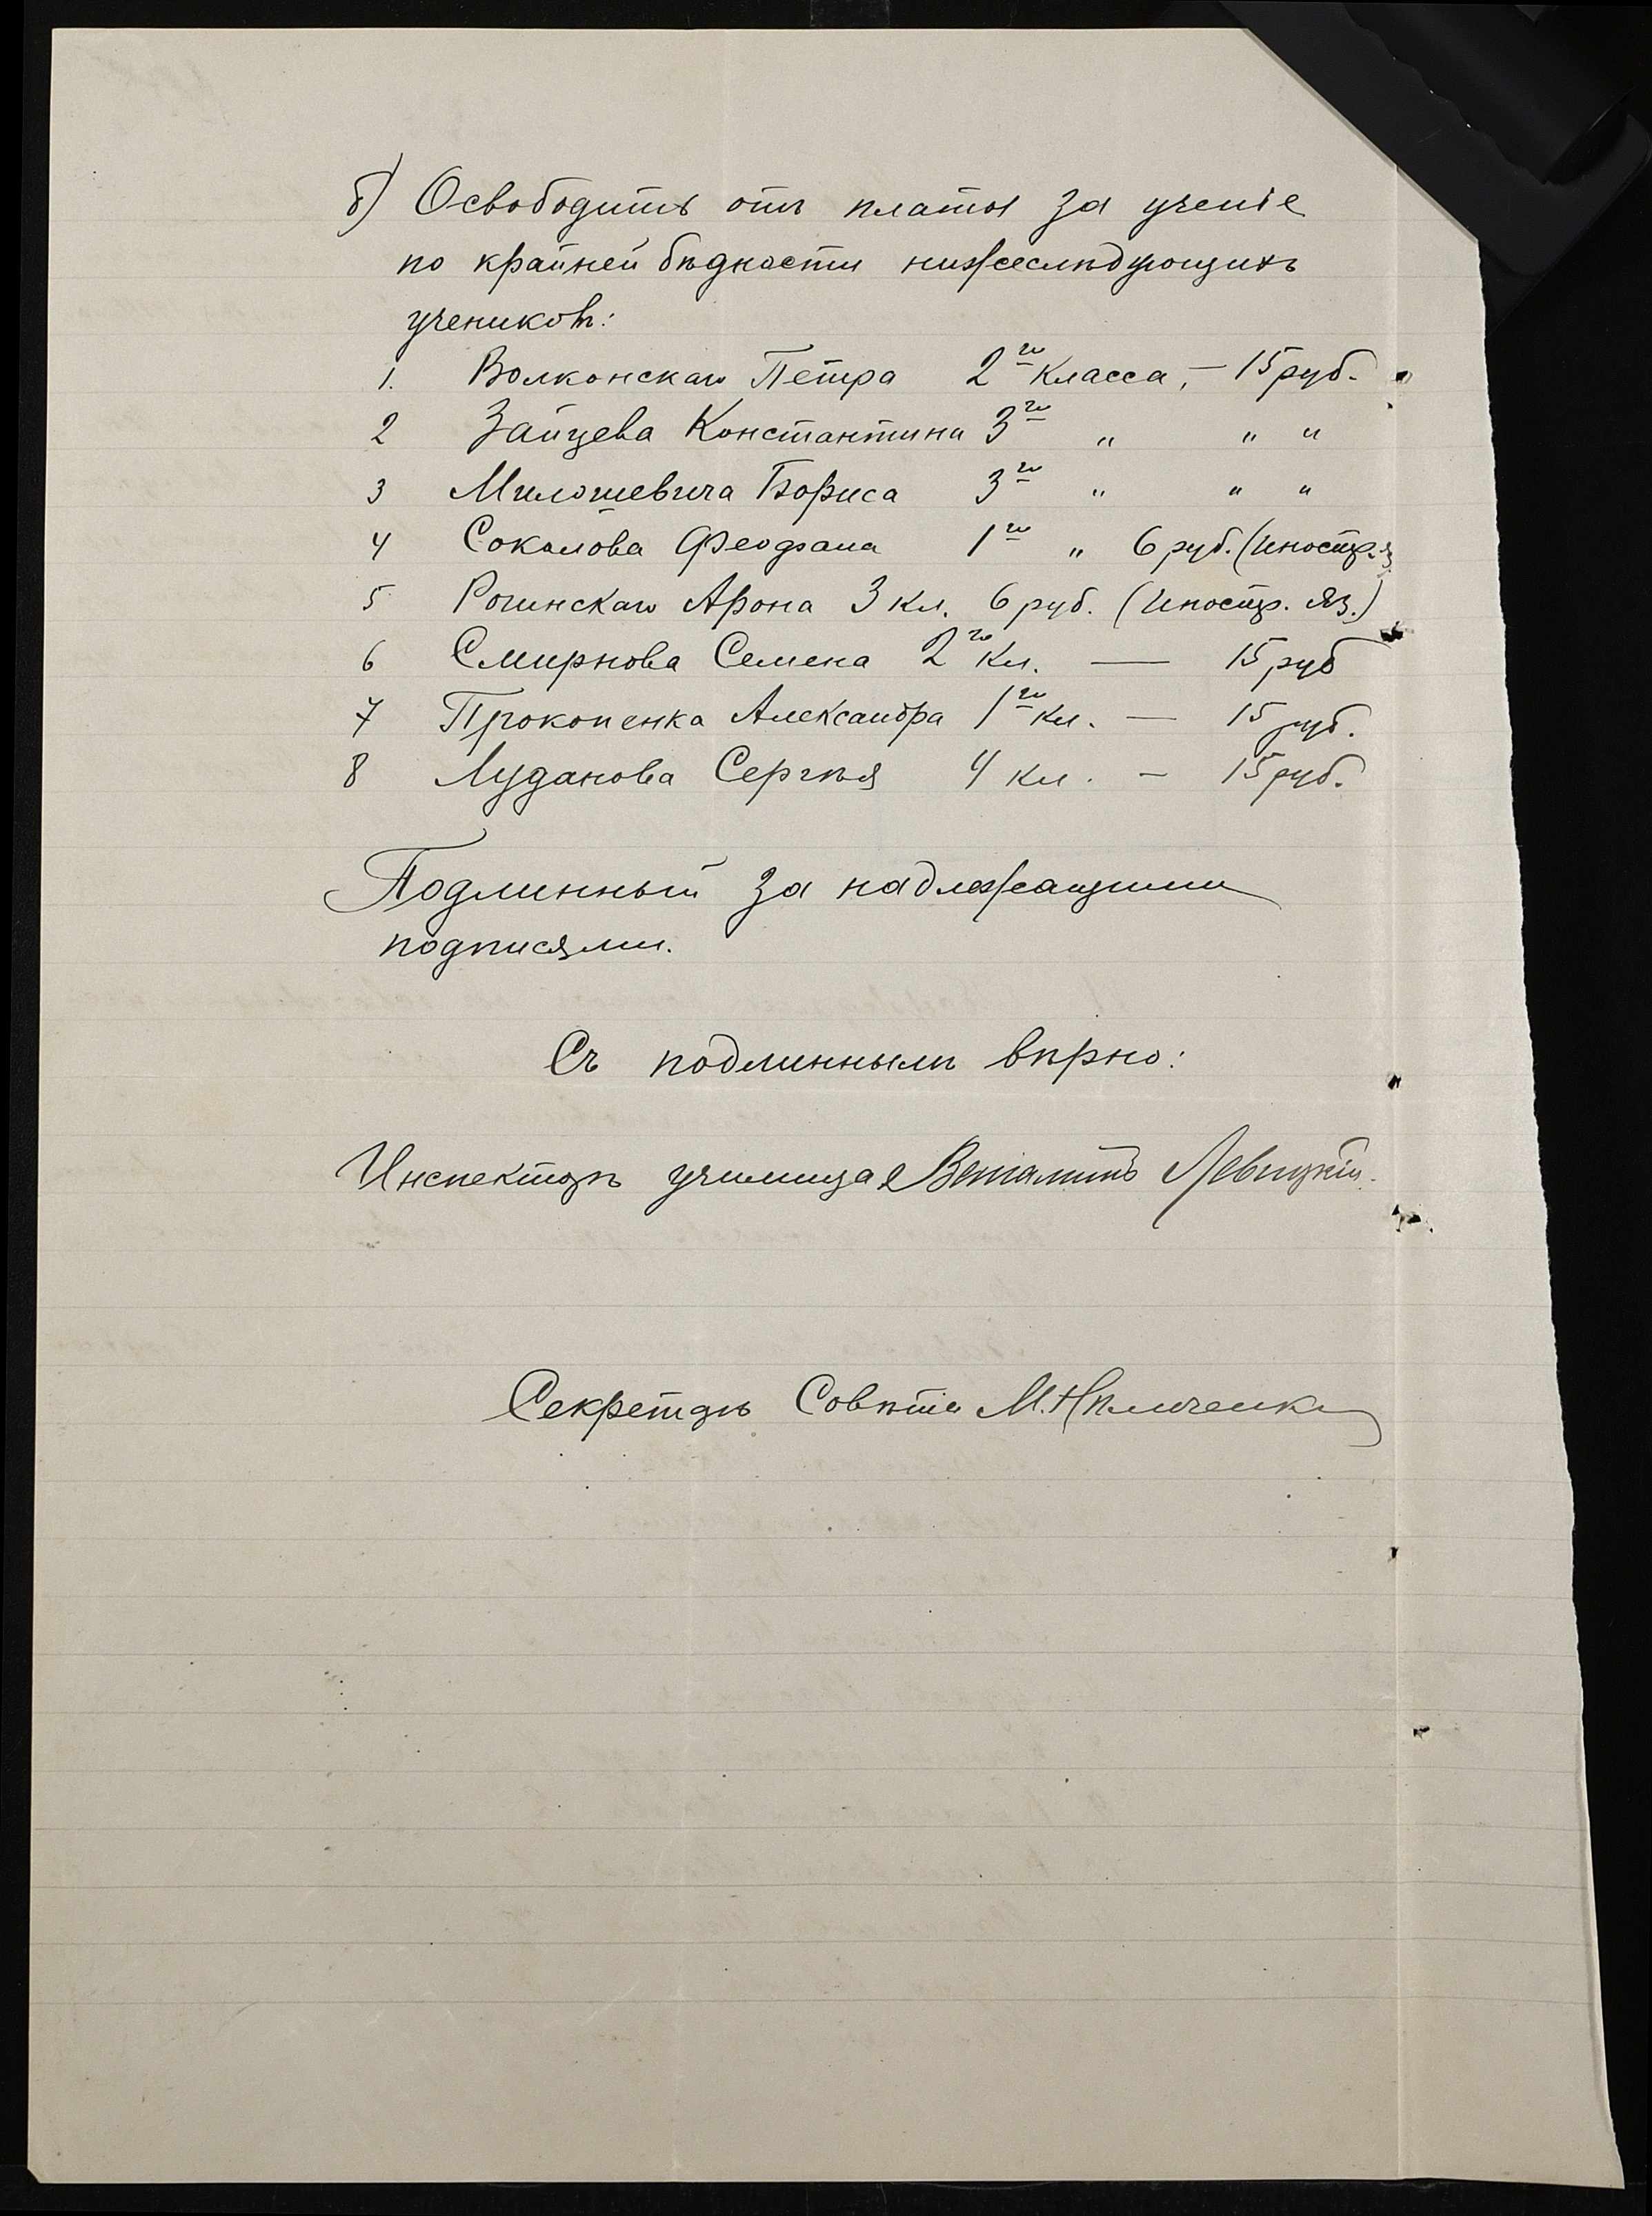 б) Освободить отъ платы за ученіе
по крайней бѣдности нижеслѣдующихъ
учениковъ:
1. Волконскаго Петра 2го класса, – 15 руб.
2 Зайцева Константина 3го " " "
3 Милошевича Бориса 3го " " "
4 Соколова Феофана 1го " 6 руб. (иностр. яз
5 Рогинскаго Арона 3 кл. 6 руб. (иностр. яз.)
6 Смирнова Семена 2го кл. — 15 руб
7 Прокопенка Александра 1го кл. — 15 руб.
8 Луданова Сергѣя 4 кл. – 15 руб.
Подлинный за надлежащими
подписями.
Съ подлиннымъ вѣрно:
Инспекторъ училища Веніаминъ Левицкій.
Секретарь Совѣта М.